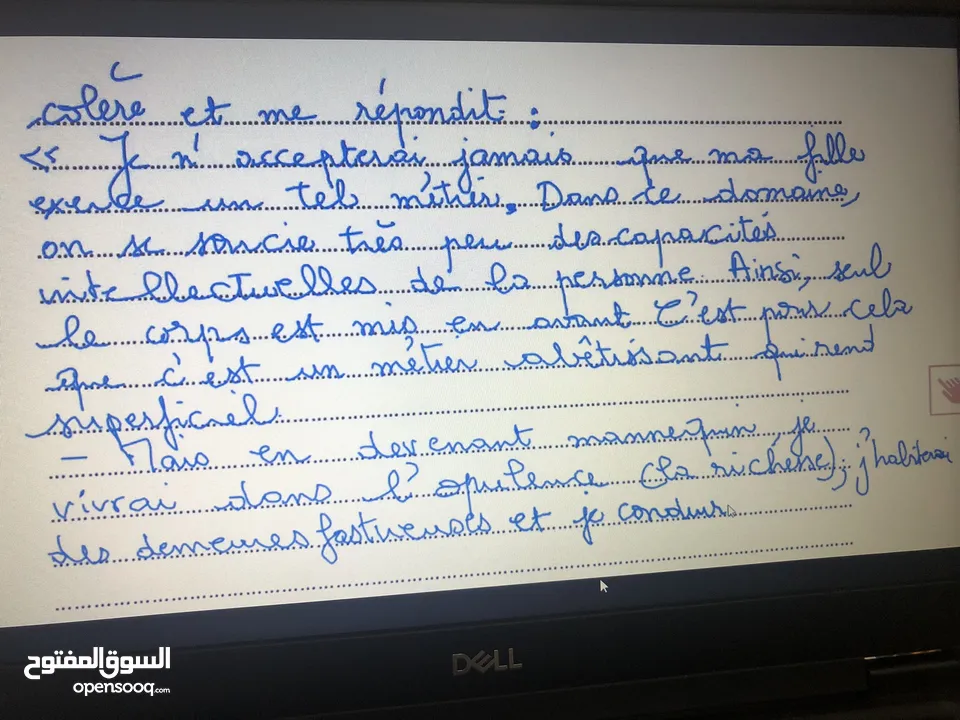 colère et me répondit :
<< Je n'accepterai jamais que ma fille
exerce un tel métier. Dans ce domaine,
on se soucie très peu des capacités
intellectuelles de la personne. Ainsi, seul
le corps est mis en avant C'est pour cela
que c'est un métier abêtissant qui rend
superficiel.
- Mais en devenant mannequin, je
vivrai dans l'opulence (la richesse), j'habiterai
des demeures fastueuses et je conduir
DELL
السوق المفتوح
opensooq.com